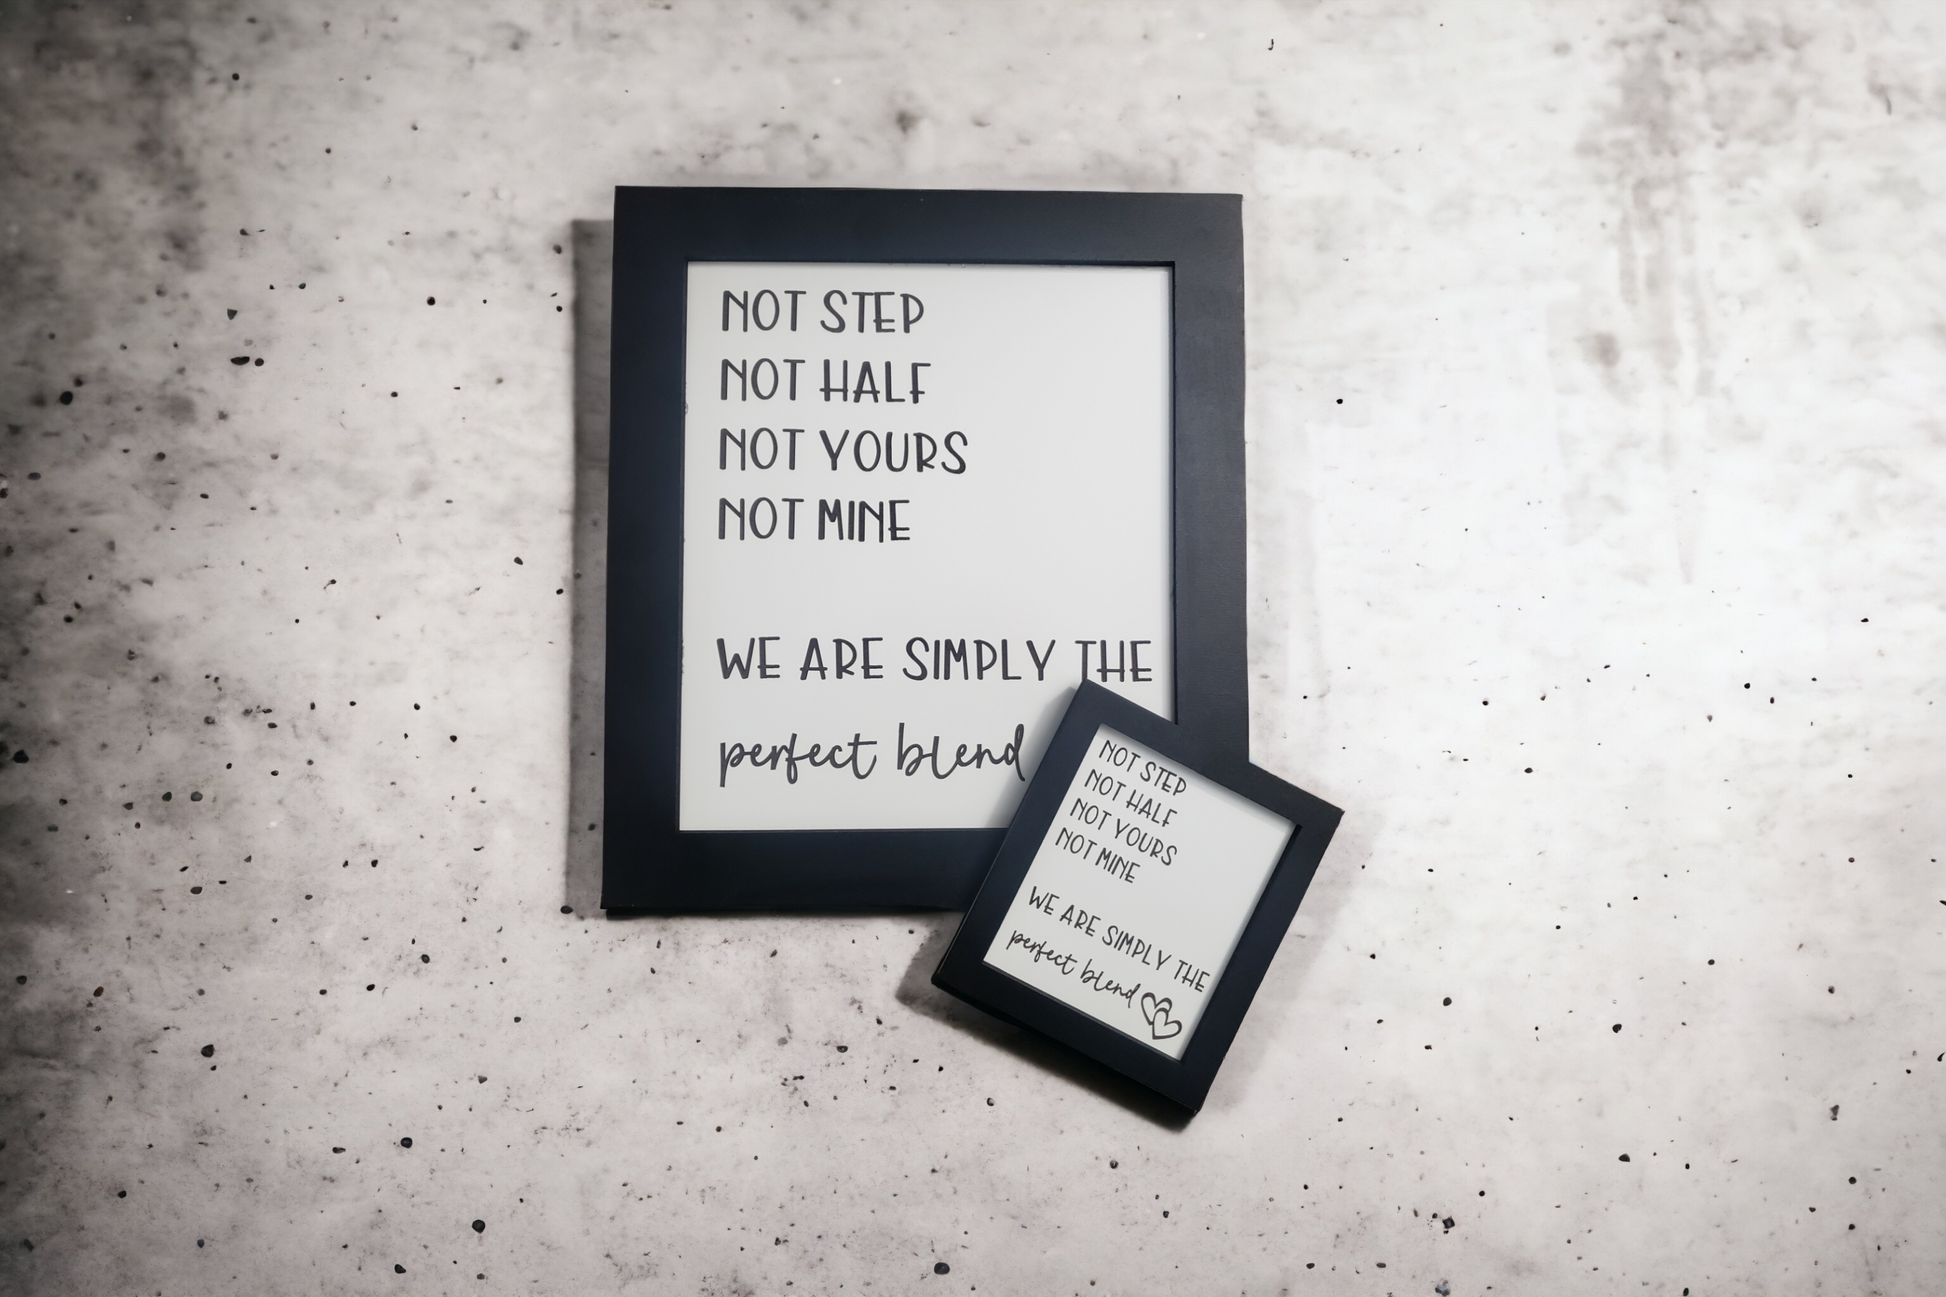 NOT STEP
NOT HALF
NOT YOURS
NOT MINE
WE ARE SIMPLY THE
perfect blend
NOT STEP
NOT HALF
NOT YOURS
NOT MINE
WE ARE SIMPLY THE
perfect blend